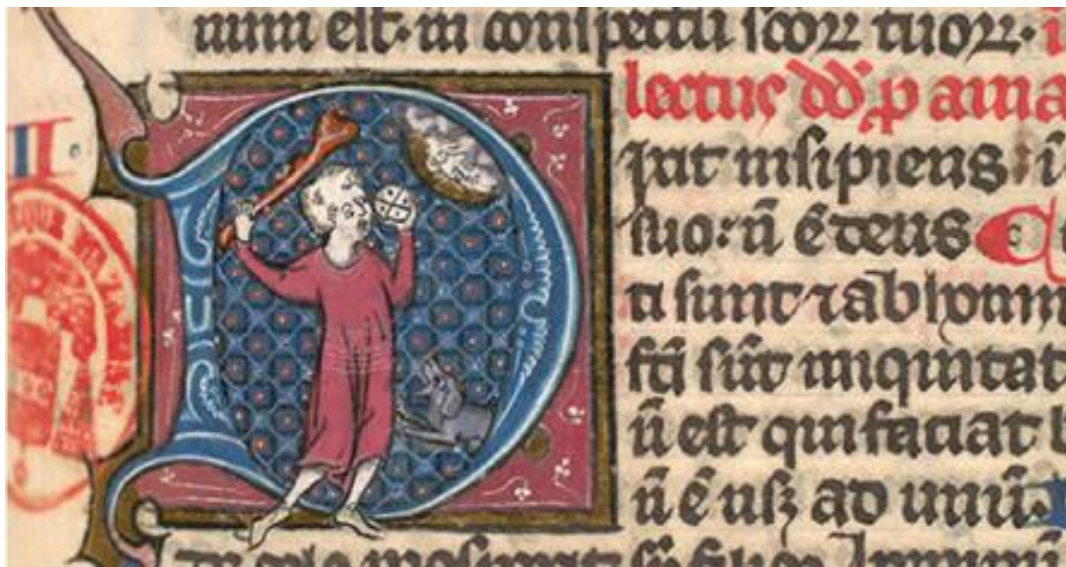 num est· in conspectu scor tuor·
lectus dd̄ p ama
D
ixit insipiens i
suo: n̄ ē deus
ti sunt ⁊ abhomin
fcī sūt iniquitat
n̄ est qui faciat b
n̄ ē usq; ad unū·